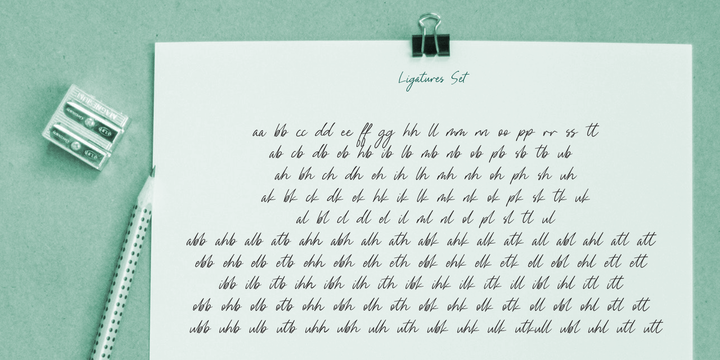 Ligatures Set
aa bb cc dd ee ff gg hh ll mm nn oo pp rr ss tt
ab cb db eb hb ib lb mb nb ob pb sb tb ub
ah bh ch dh eh ih lh mh nh oh ph sh uh
ak bk ck dk ek hk ik lk mk nk ok pk sk tk uk
al bl cl dl el il ml nl ol pl sl tl ul
abb ahb alb atb ahh abh alh ath abk ahk alk atk all abl ahl atl att
ebb ehb elb etb ehh ebh elh eth ebk ehk elk etk ell ebl ehl etl ett
ibb ilb itb ihh ibh ilh ith ibk ihk ilk itk ill ibl ihl itl itt
obb ohb olb otb ohh obh olh oth obk ohk olk otk oll obl ohl otl ott
ubb uhb ulb utb uhh ubh ulh uth ubk uhk ulk utkull ubl uhl utl utt